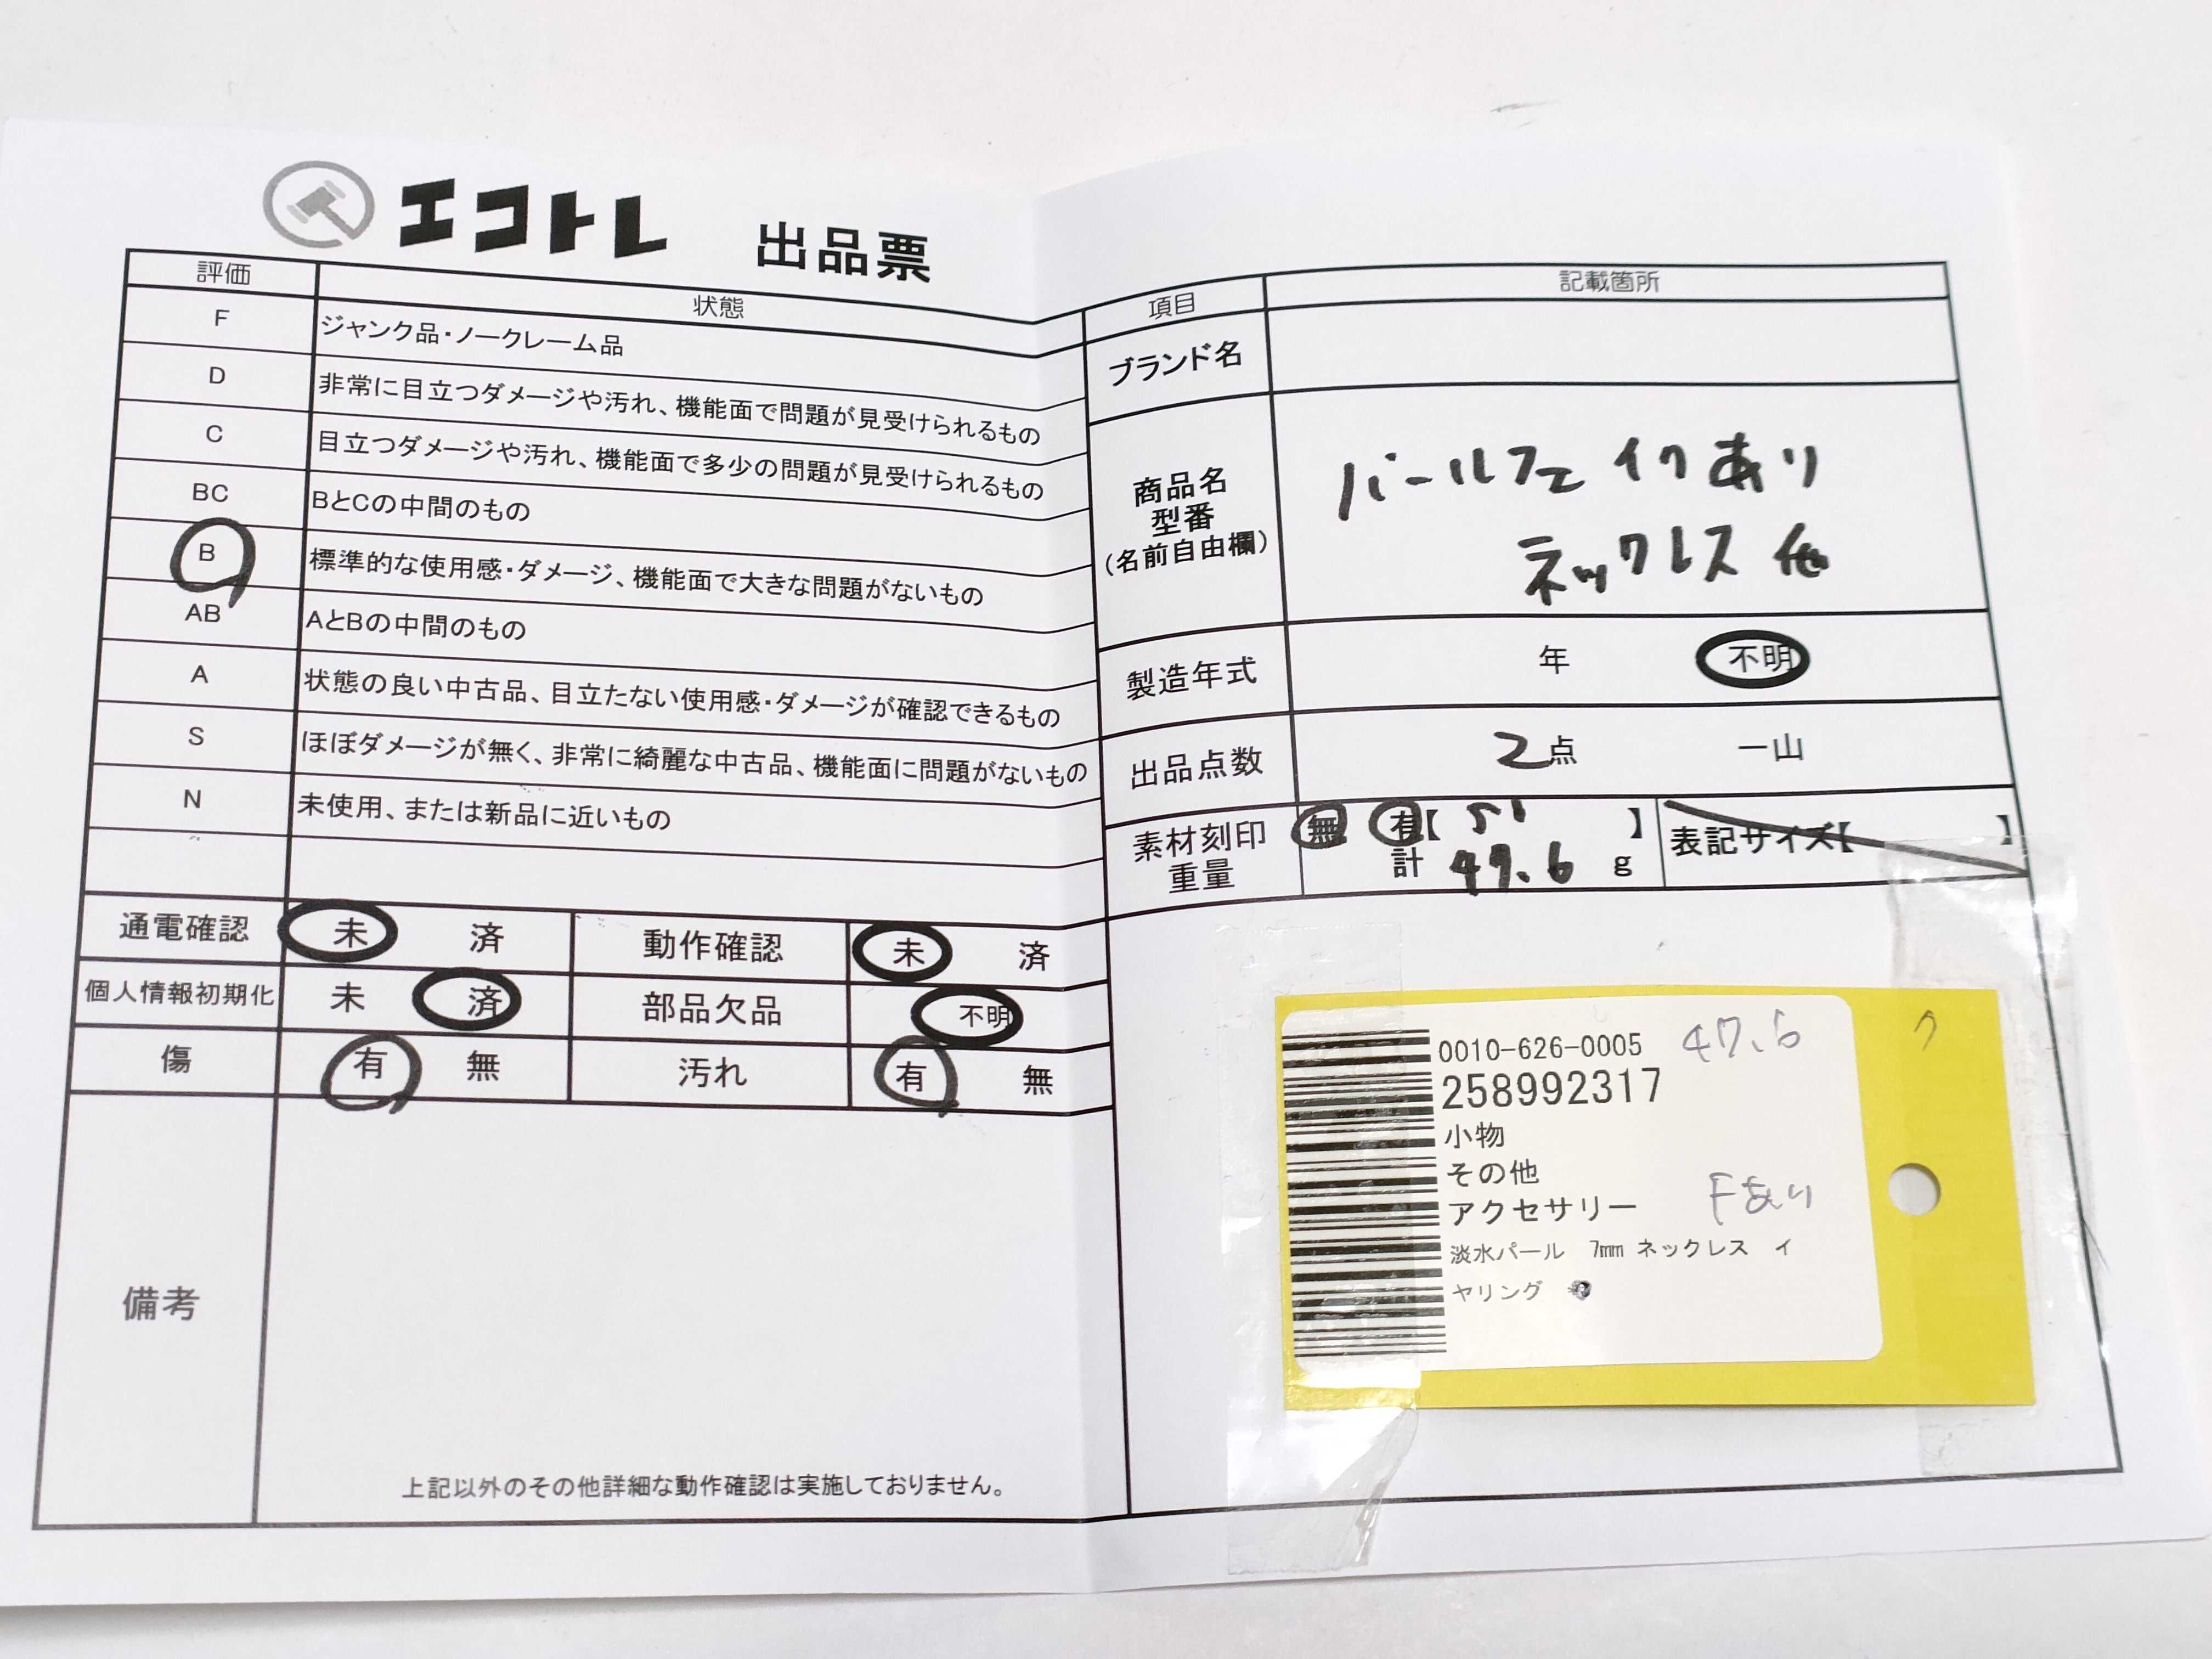 エコトレ 出品票
評価 状態
F ジャンク品・ノークレーム品
D 非常に目立つダメージや汚れ、機能面で問題が見受けられるもの
C 目立つダメージや汚れ、機能面で多少の問題が見受けられるもの
BC BとCの中間のもの
B 標準的な使用感・ダメージ、機能面で大きな問題がないもの
AB AとBの中間のもの
A 状態の良い中古品、目立たない使用感・ダメージが確認できるもの
S ほぼダメージが無く、非常に綺麗な中古品、機能面に問題がないもの
N 未使用、または新品に近いもの
通電確認 未 済 動作確認 未 済
個人情報初期化 未 済 部品欠品 不明
傷 有 無 汚れ 有 無
備考
上記以外のその他詳細な動作確認は実施しておりません。
項目 記載箇所
ブランド名
商品名
型番
(名前自由欄)
パールフェイクあり
ネックレス他
製造年式 年 不明
出品点数 2点 一山
素材刻印 無 有【 】 表記サイズ【 】
重量 計 47.6 g
0010-626-0005 47.6
258992317
小物
その他
アクセサリー Fあり
淡水パール 7mm ネックレス イ
ヤリング